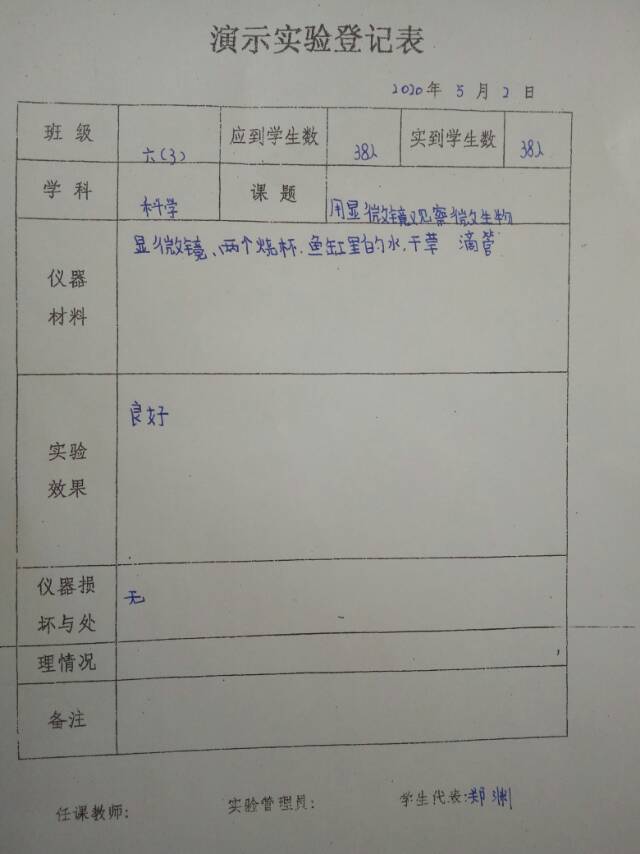 演示实验登记表
2020年 5 月 2 日
班 级 六(3) 应到学生数 38人 实到学生数 38人
学 科 科学 课 题 用显微镜观察微生物
仪器
材料
显微镜、两个烧杯.鱼缸里的水,干草 滴管
实验
效果
良好
仪器损
坏与处
理情况
无
备注
任课教师: 实验管理员: 学生代表:郑渊